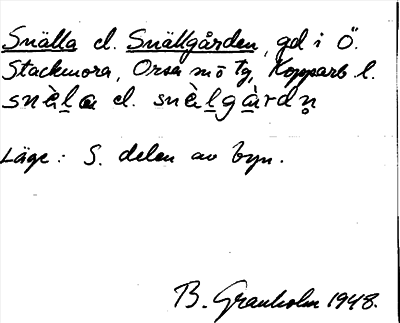 Snälla el. Snällgården, gd i Ö.
Stackmora, Orsa sn o tg, Kopparb l.
snèl̲a el. snèl̲gà̲rdn̥
Läge: S. delen av byn.
B. Granholm 1948.